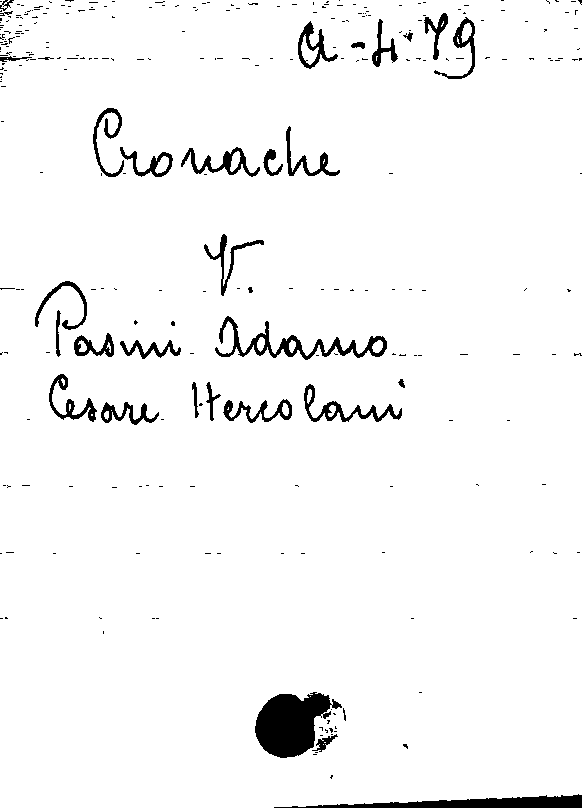 a-4.79
Cronache
V.
Pasini Adamo
Cesare Hercolani